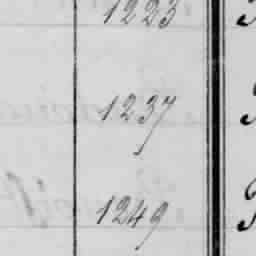 1223
1237
1249